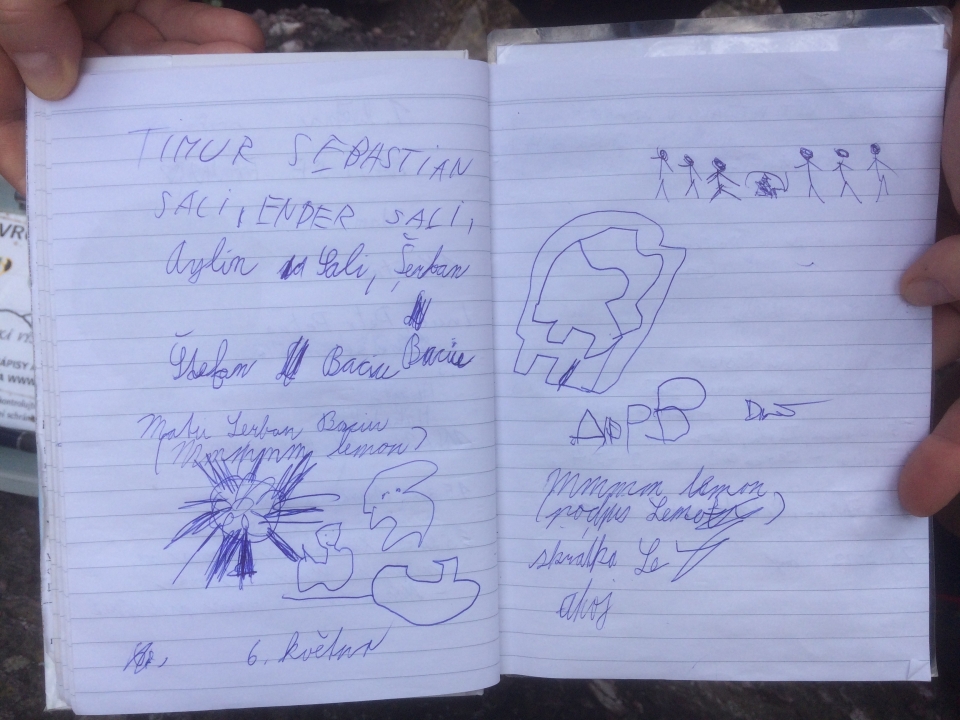 TIMUR SEBASTIAN
SALI, ENDER SALI,
Aylin Sali, Šerban
Štefan Baciu Baciu
Matu Serban Baciu
(Mmmmm lemon)
6. května
Mmmmm lemon
(podpis Lemo )
skratka Le
ahoj